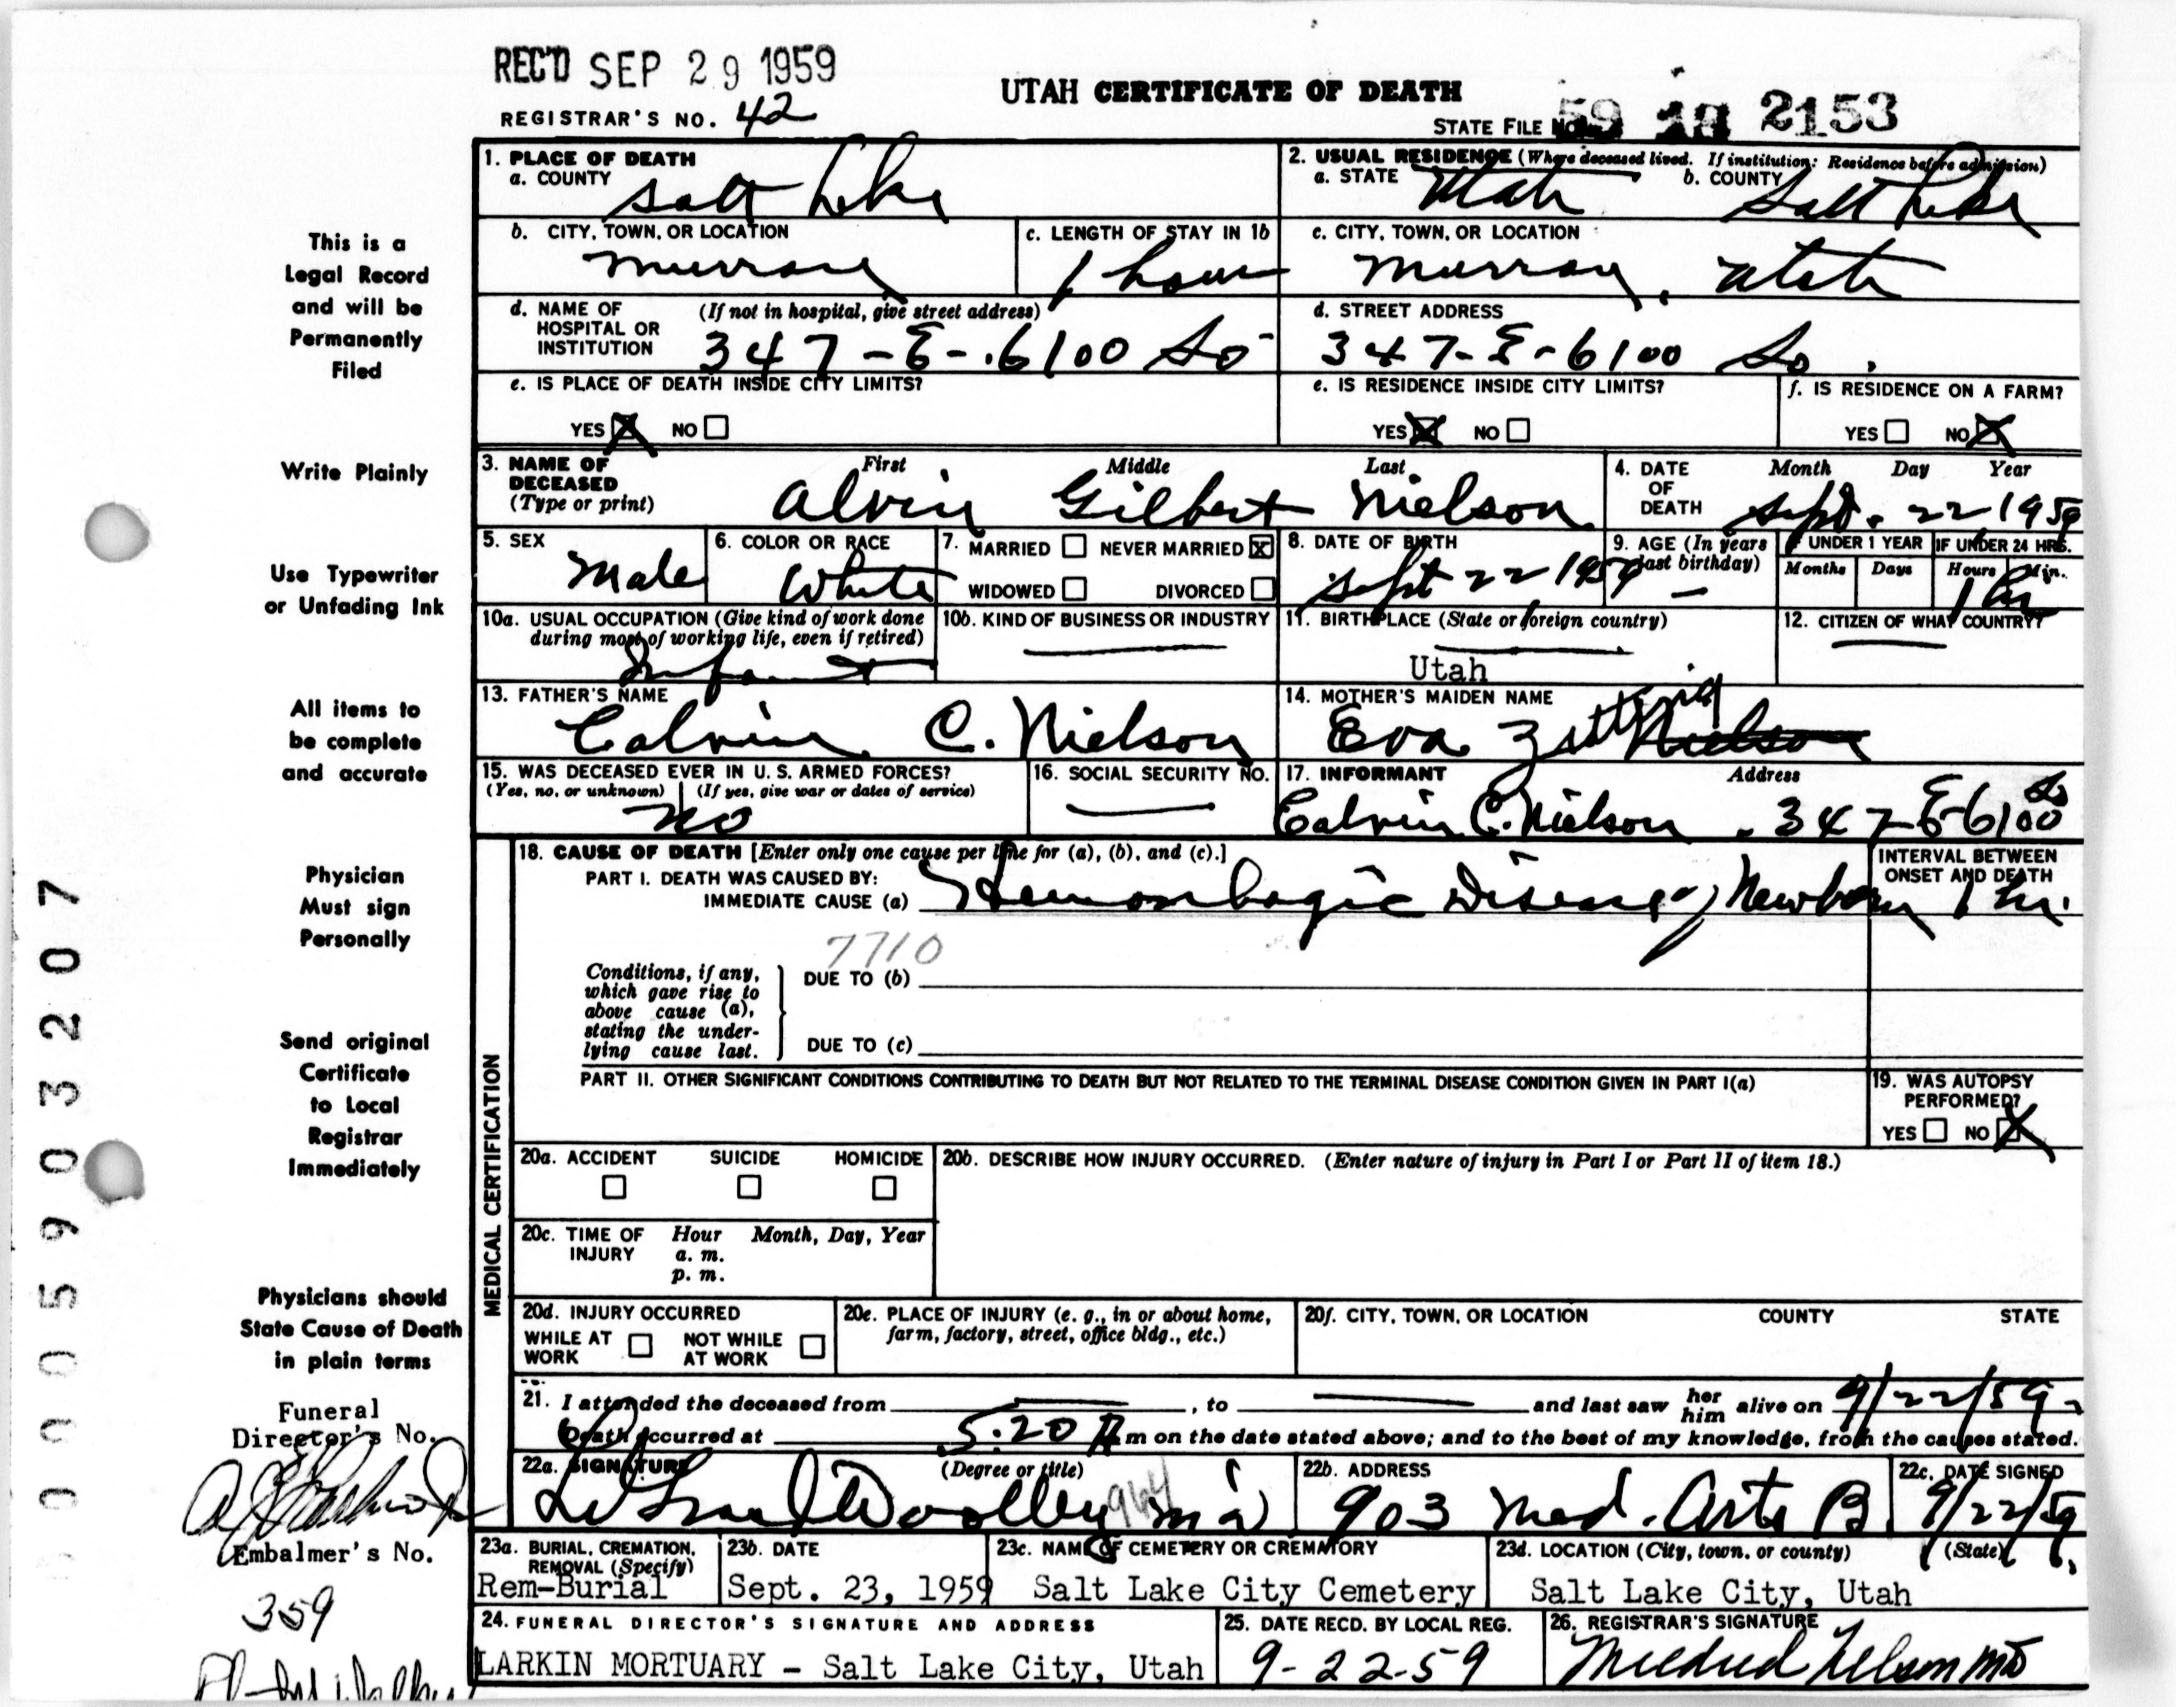 REC'D SEP 29 1959
UTAH CERTIFICATE OF DEATH
REGISTRAR'S NO. 42
STATE FILE No. 59 18 2153
1. PLACE OF DEATH
a. COUNTY Salt Lake
2. USUAL RESIDENCE (Where deceased lived. If institution: Residence before admission)
a. STATE Utah b. COUNTY Salt Lake
b. CITY, TOWN, OR LOCATION Murray
c. LENGTH OF STAY IN 1b 1 hour
c. CITY, TOWN, OR LOCATION Murray, Utah
d. NAME OF HOSPITAL OR INSTITUTION (If not in hospital, give street address) 347-E-6100 So
d. STREET ADDRESS 347-E-6100 So.
e. IS PLACE OF DEATH INSIDE CITY LIMITS?
YES X NO
e. IS RESIDENCE INSIDE CITY LIMITS?
YES X NO
f. IS RESIDENCE ON A FARM?
YES NO X
3. NAME OF DECEASED (Type or print)
First Middle Last
Alvin Gilbert Nielson
4. DATE OF DEATH Month Day Year
Sept. 22 1959
5. SEX Male
6. COLOR OR RACE White
7. MARRIED NEVER MARRIED X
WIDOWED DIVORCED
8. DATE OF BIRTH Sept 22 1959
9. AGE (In years last birthday) -
IF UNDER 1 YEAR Months Days
IF UNDER 24 HRS. Hours Min. 1 hr
10a. USUAL OCCUPATION (Give kind of work done during most of working life, even if retired) Infant
10b. KIND OF BUSINESS OR INDUSTRY
11. BIRTHPLACE (State or foreign country) Utah
12. CITIZEN OF WHAT COUNTRY?
13. FATHER'S NAME Calvin C. Nielson
14. MOTHER'S MAIDEN NAME Eva Zitting Nielson
15. WAS DECEASED EVER IN U. S. ARMED FORCES?
(Yes, no, or unknown) (If yes, give war or dates of service)
no
16. SOCIAL SECURITY NO.
17. INFORMANT Address
Calvin C. Nielson. 347-E-6100 So
18. CAUSE OF DEATH [Enter only one cause per line for (a), (b), and (c).]
PART I. DEATH WAS CAUSED BY:
IMMEDIATE CAUSE (a) Hemorrhagic Disease of Newborn
INTERVAL BETWEEN ONSET AND DEATH 1 hr.
7710
Conditions, if any, which gave rise to above cause (a), stating the underlying cause last.
DUE TO (b)
DUE TO (c)
PART II. OTHER SIGNIFICANT CONDITIONS CONTRIBUTING TO DEATH BUT NOT RELATED TO THE TERMINAL DISEASE CONDITION GIVEN IN PART I(a)
19. WAS AUTOPSY PERFORMED?
YES NO X
20a. ACCIDENT SUICIDE HOMICIDE
20b. DESCRIBE HOW INJURY OCCURRED. (Enter nature of injury in Part I or Part II of item 18.)
20c. TIME OF INJURY Hour a. m. p. m. Month, Day, Year
20d. INJURY OCCURRED
WHILE AT WORK NOT WHILE AT WORK
20e. PLACE OF INJURY (e. g., in or about home, farm, factory, street, office bldg., etc.)
20f. CITY, TOWN, OR LOCATION COUNTY STATE
21. I attended the deceased from , to and last saw her him alive on 9/22/59
Death occurred at 5:20 P m on the date stated above; and to the best of my knowledge, from the causes stated.
22a. SIGNATURE (Degree or title)
Woolley MD
964
22b. ADDRESS 903 Med. Arts B.
22c. DATE SIGNED 9/22/59
23a. BURIAL, CREMATION, REMOVAL (Specify)
Rem-Burial
23b. DATE
Sept. 23, 1959
23c. NAME OF CEMETERY OR CREMATORY
Salt Lake City Cemetery
23d. LOCATION (City, town, or county) (State)
Salt Lake City, Utah
24. FUNERAL DIRECTOR'S SIGNATURE AND ADDRESS
LARKIN MORTUARY - Salt Lake City, Utah
25. DATE RECD. BY LOCAL REG.
9-22-59
26. REGISTRAR'S SIGNATURE
Mildred Nelson MD
MEDICAL CERTIFICATION
This is a
Legal Record
and will be
Permanently
Filed
Write Plainly
Use Typewriter
or Unfading Ink
All items to
be complete
and accurate
Physician
Must sign
Personally
Send original
Certificate
to Local
Registrar
Immediately
Physicians should
State Cause of Death
in plain terms
Funeral
Director's No.
Embalmer's No.
359
0005903207